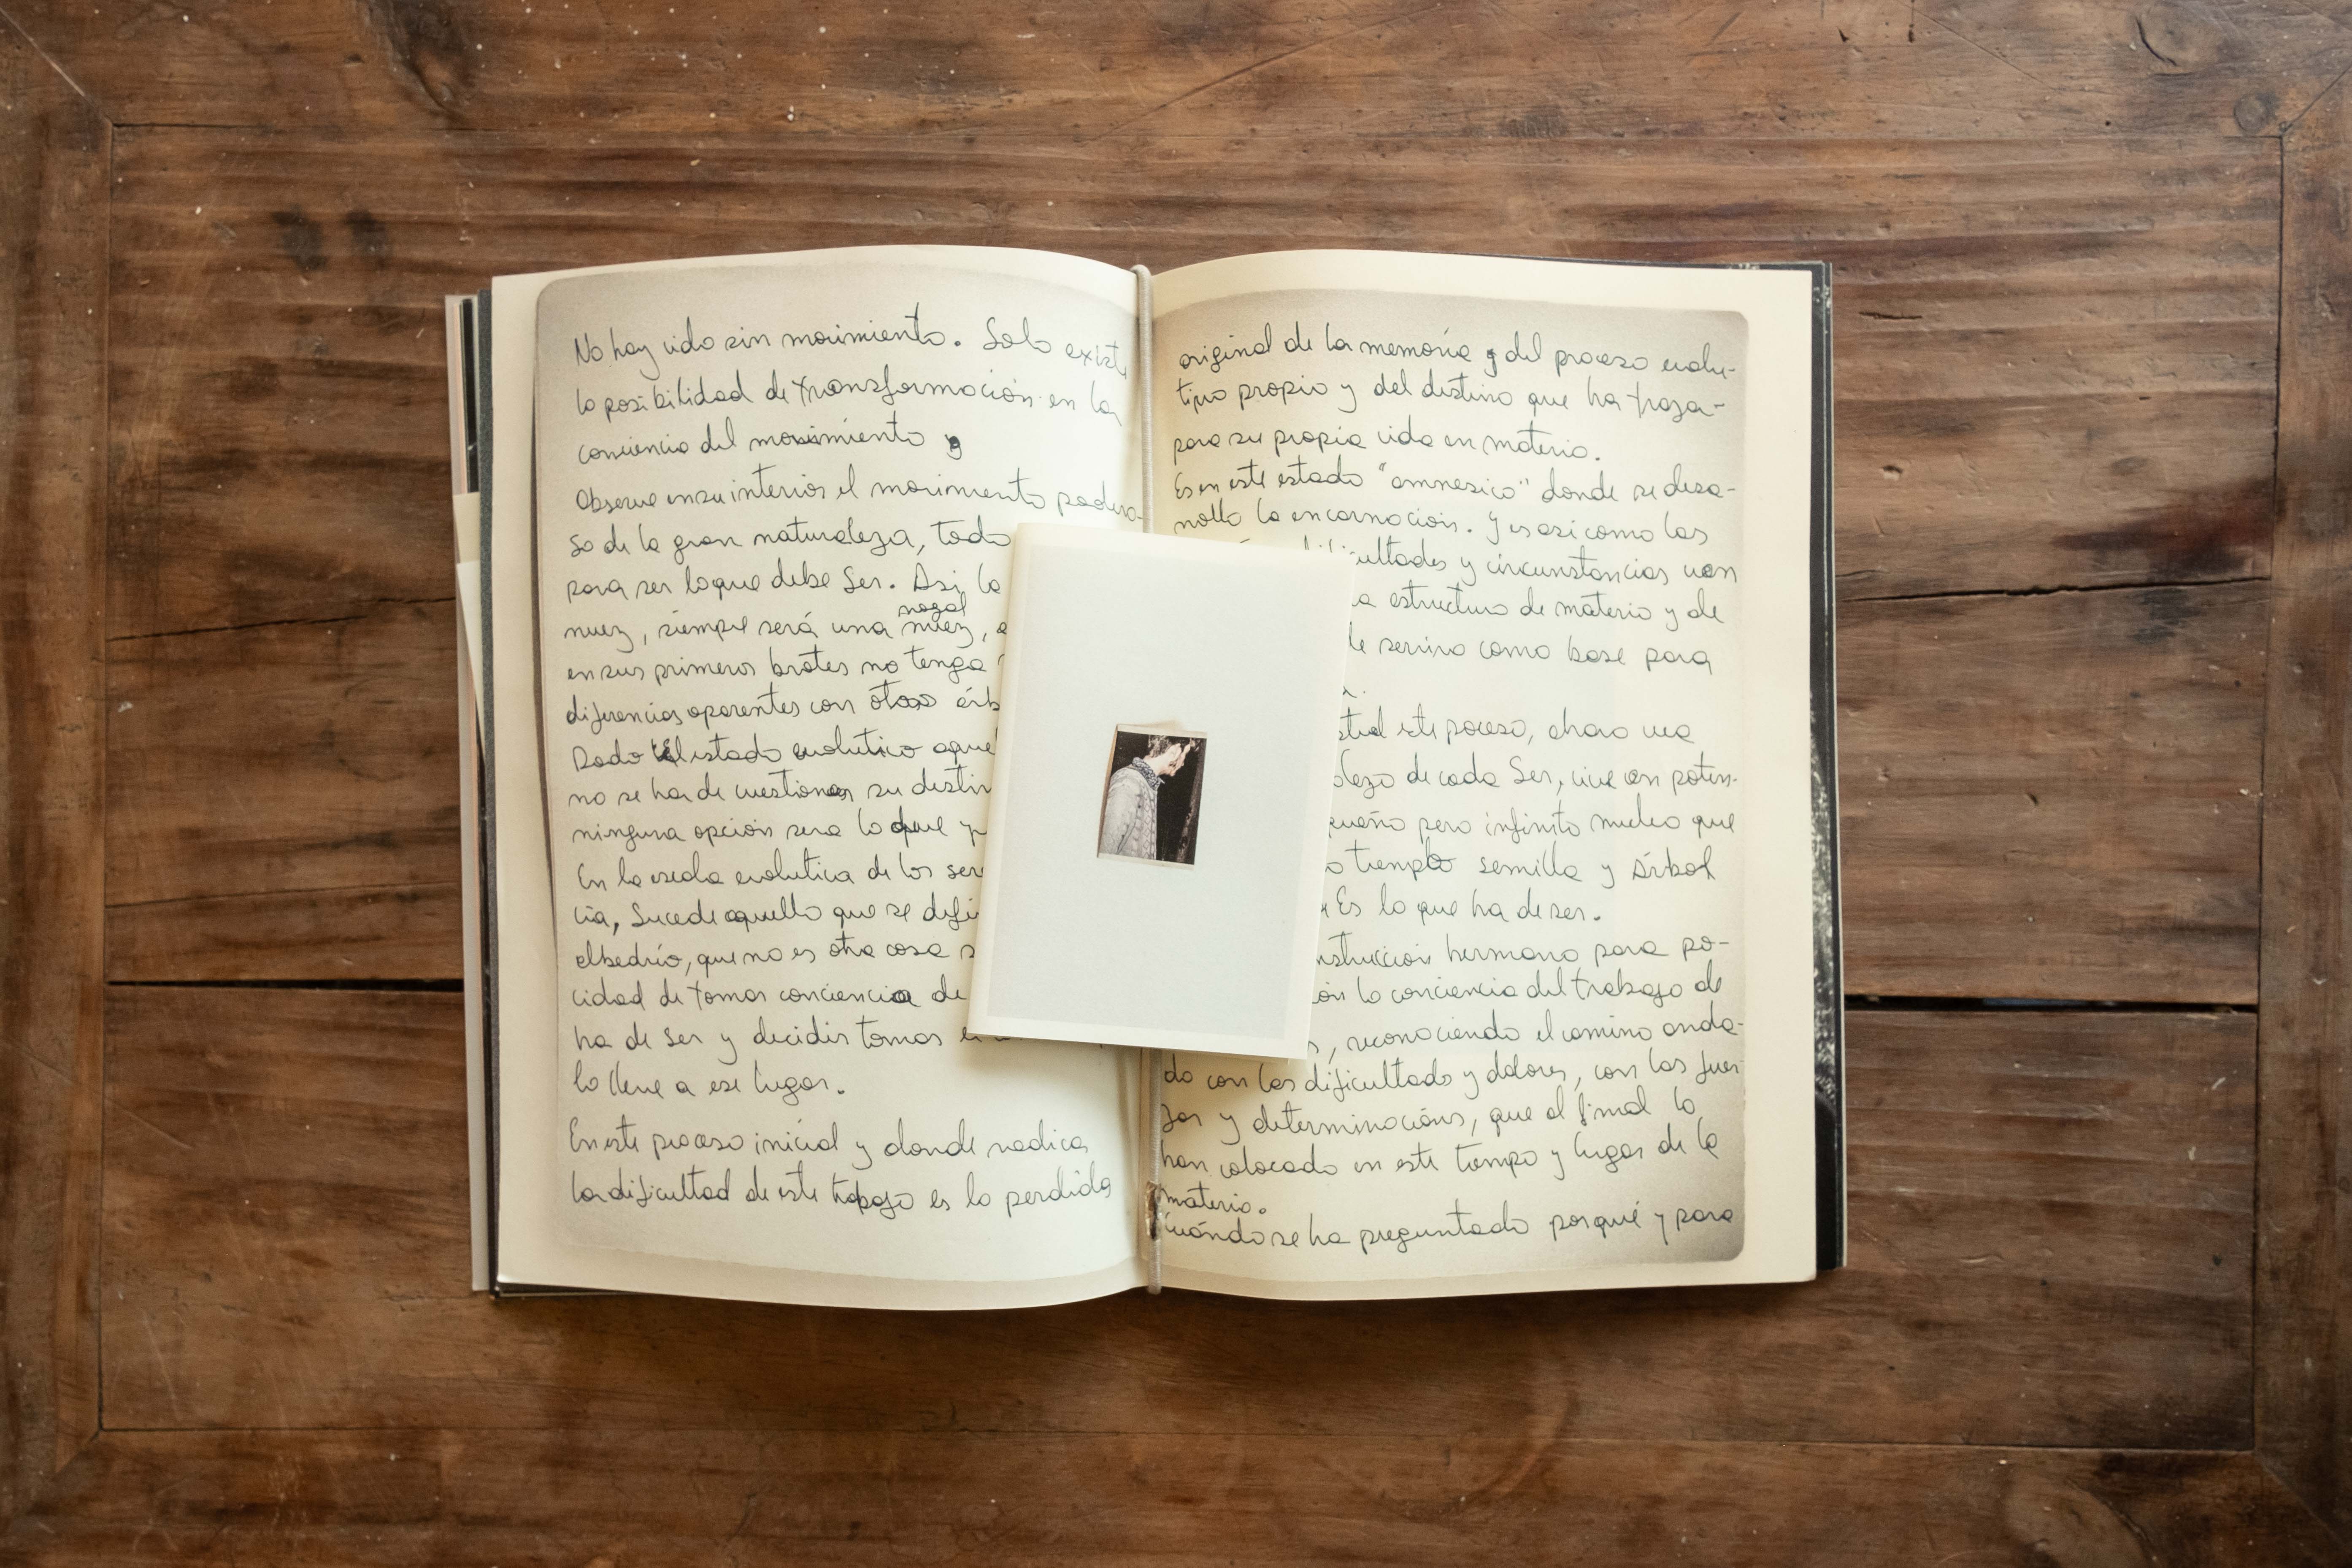 No hay vida sin movimiento. Solo existe
la posibilidad de transformación en la
conciencia del movimiento y
Observe en su interior el movimiento podero-
so de la gran naturaleza, todo
para ser lo que debe Ser. Asi, la
nogal
nuez, siempre será una nuez, a
en sus primeros brotes no tenga
diferencias aparentes con otros árb
Dado el estado evolutivo aquel
no se ha de cuestionar su destin
ninguna opción sera lo que
En la escala evolutiva de los ser
cia, Sucede aquello que se defi
albedrío, que no es otra cosa
cidad de tomar conciencia de
ha de Ser y decidir tomar
lo lleve a ese lugar.
En este proceso inicial y donde radica
la dificultad de este trabajo es la perdida
original de la memoria y del proceso evolu-
tivo propio y del destino que ha traza-
para su propia vida en materia.
Es en este estado "amnesico" donde se desa-
rrolla la encarnación. Y es asi como las
dificultades y circunstancias van
a estructura de materia y de
le servira como base para
este proceso, ahora vea
de cada Ser, vive en poten-
queño pero infinito nucleo que
o tiempo semilla y Arbol
Es lo que ha de ser.
nstrucción hermano para po-
ón la conciencia del trabajo de
s, reconociendo el camino anda-
do con las dificultades y dolores, con las fuer-
zas y determinacións, que al final lo
han colocado en este tiempo y lugar de la
materia.
cuándo se ha preguntado porqué y para